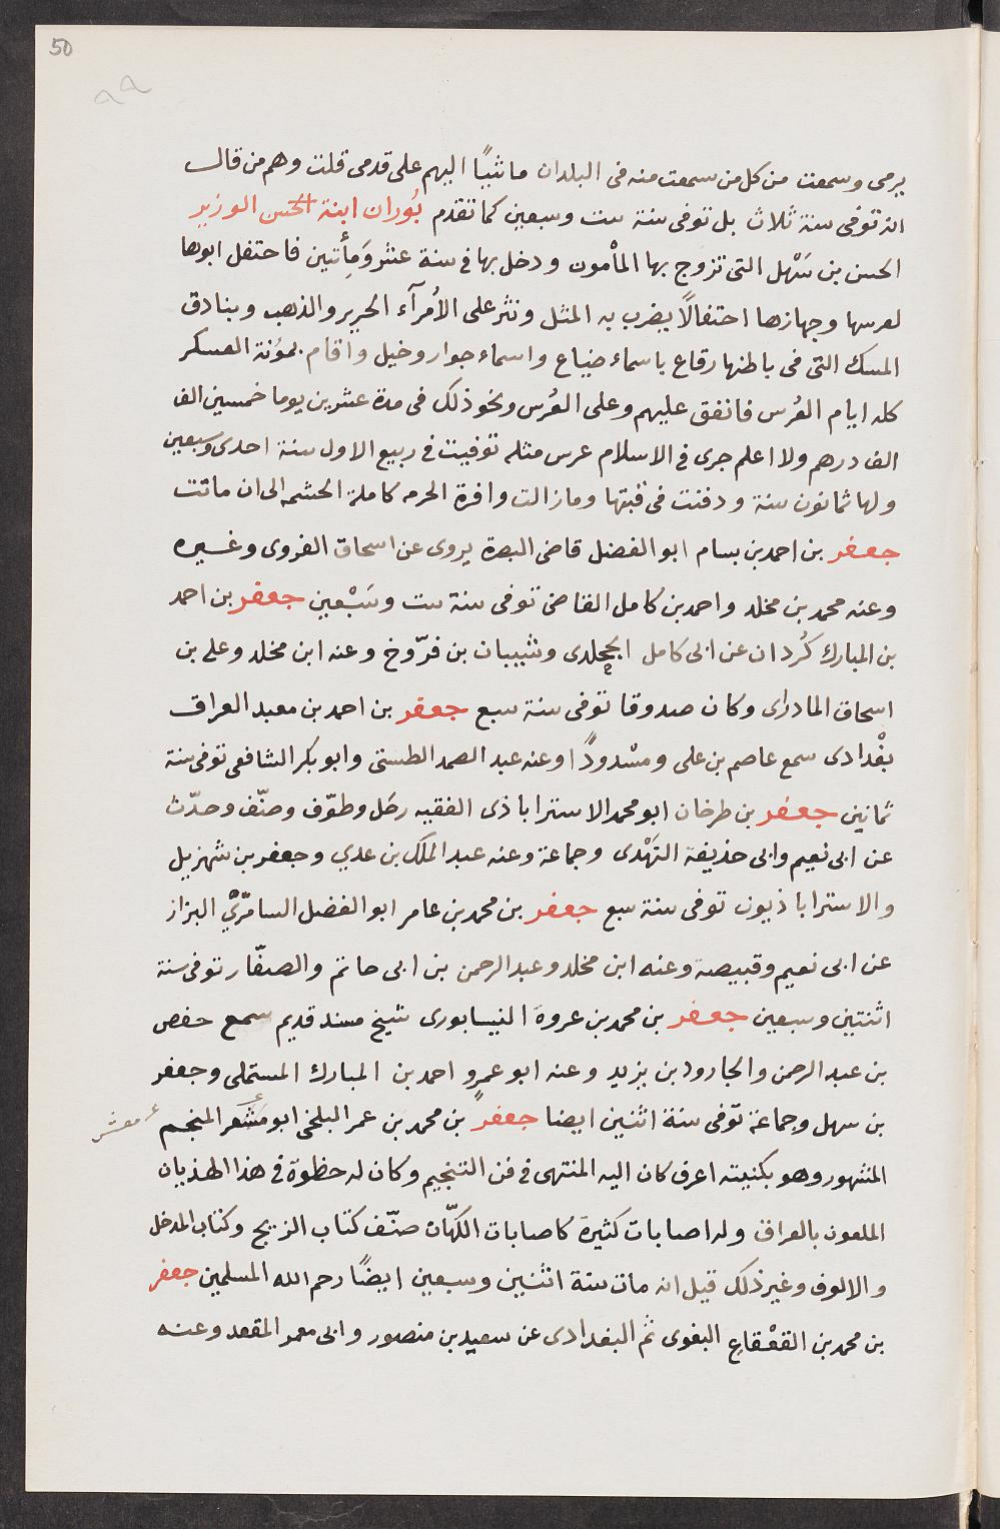 50
٩٩
يرمى وسمعت من كل من سمعت منه فى البلدان ماشيًا اليهم على قدمى قلت وهم من قال
انه توفى سنة ثلاث بل توفى سنة ست وسبعين كما تقدم بُوران ابنة الحسن الوزير
الحسن بن سَهْل التى تزوج بها المأمون ودخل بها فى سنة عشر وَمِأتين فاحتفل ابوها
لعرسها وجهازها احتفالًا يضرب به المثل ونثر على الأمرآء الحرير والذهب وبنادق
المسك التى فى باطنها رقاع باسماء ضياع واسماء جوار وخيل واقام بمؤنة العسكر
كله ايام العُرس فانفق عليهم وعلى العُرس ونحو ذلك فى مدة عشرين يوما خمسين الف
الف درهم ولا اعلم جرى فى الاسلام عرس مثله توفيت فى ربيع الاول سنة احدى وسبعين
ولها ثمانون سنة ودفنت فى قبتها ومازالت وافرة الحرمه كاملة الحشمه الى ان ماتت
جعفر بن احمد بن بسام ابو الفضل قاضى البصرة يروى عن اسحاق الفروى وغيره
وعنه محمد بن مخلد واحمد بن كامل القاضى توفى سنة ست وسَبْعين جعفر بن احمد
بن المبارك كُردان عن ابى كامل الجحدرى وشيبان بن فرّوخ وعنه ابن مخلد وعلى بن
اسحاق المادراى وكان صدوقا توفى سنة سبع جعفر بن احمد بن معبد العراق
بغْدادى سمع عاصم بن على ومسْدودًا وعنه عبد الصمد الطستى وابو بكر الشافعى توفى سنة
ثمانين جعفر بن طرخان ابو محمد الاستراباذى الفقيه رحَل وطوّف وصنّف وحدّث
عن ابى نعيم وابى حذيفة النَهْدى وجماعة وعنه عبد الملك بن عدي وجعفر بن شهزيل
والاستراباذيون توفى سنة سبع جعفر بن محمد بن عامر ابو الفضل السامرّيْ البزاز
عن ابى نعيم وقبيصة وعنه ابن مخلد وعبد الرحمن بن ابى حاتم والصفّار توفى سنة
اثنتين وسبعين جعفر بن محمد بن عروة النيسابورى شيخ مسند قديم سمع حفص
بن عبد الرحمن والجارود بن يزيد وعنه ابو عمرو احمد بن المبارك المستملى وجعفر
بن سهل وجماعة توفى سنة اثنين ايضا جعفر بن محمد بن عمر البلخى ابو مَشعر المنجم
معشر
المشهور وهو بكنيته اعرف كان اليه المنتهى فى فن التنجيم وكان له حظوة فى هذا الهذيان
الملعون بالعراق وله اصابات كثيرة كاصابات الكهّان صنّف كتاب الزيج وكتاب المدخل
والالوف وغير ذلك قيل انه مات سنة اثنين وسبعين ايضًا رحم الله المسلمين جعفر
بن محمد بن القعْقاع البغوى ثم البغدادى عن سعيد بن منصور وابى معمر المقعد وعنه